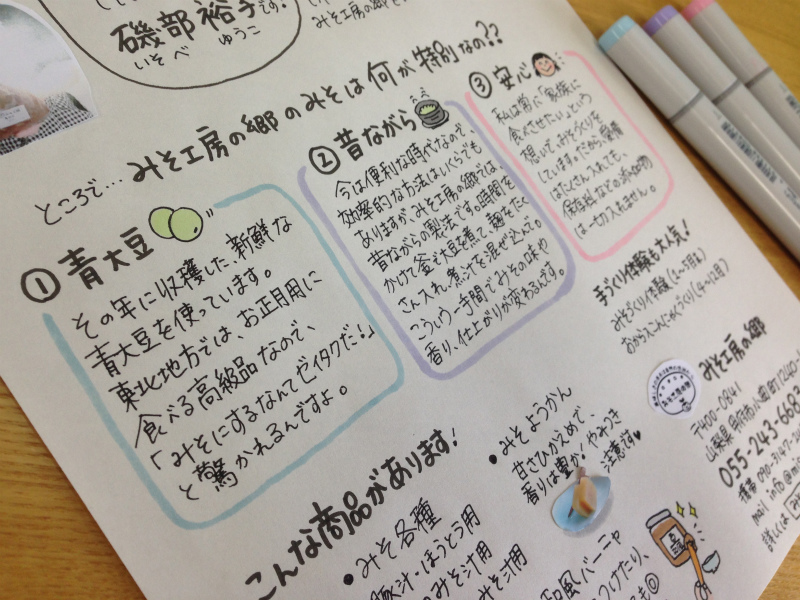 磯部裕子です!
いそべ ゆうこ
みそ工房の郷
ところで… みそ工房の郷のみそは何が特別なの??
① 青大豆
その年に収穫した、新鮮な
青大豆を使っています。
東北地方では、お正月用に
食べる高級品なので、
「みそにするなんてゼイタクだ!」
と驚かれるんですよ。
② 昔ながら
今は便利な時代なので、
効率的な方法はいくらでも
ありますが、みそ工房の郷では、
昔ながらの製法です。時間を
かけて釜で大豆を煮て、麹をたく
さん入れ、煮汁を混ぜ込んで。
こういう一手間でみその味や
香り、仕上がりが変わるんです。
③ 安心
私は常に「家族に
食べさせたい」という
想いで、みそづくりを
しています。だから、愛情
はたくさん入れても、
保存料などの添加物
は一切入れません。
手づくり体験も大人気!
みそづくり体験
おからこんにゃくづくり
みそ工房の郷
〒400-0841
055-243-668
携帯 090-3147-
mail info@m
詳しくは
こんな商品があります!
• みそ各種
豚汁・ほうとう用
みそ汁用
みそ汁用
• みそようかん
甘さひかえめで、
香りは豊か!やみつき
注意です♥
和風バーニャ
つけたり、